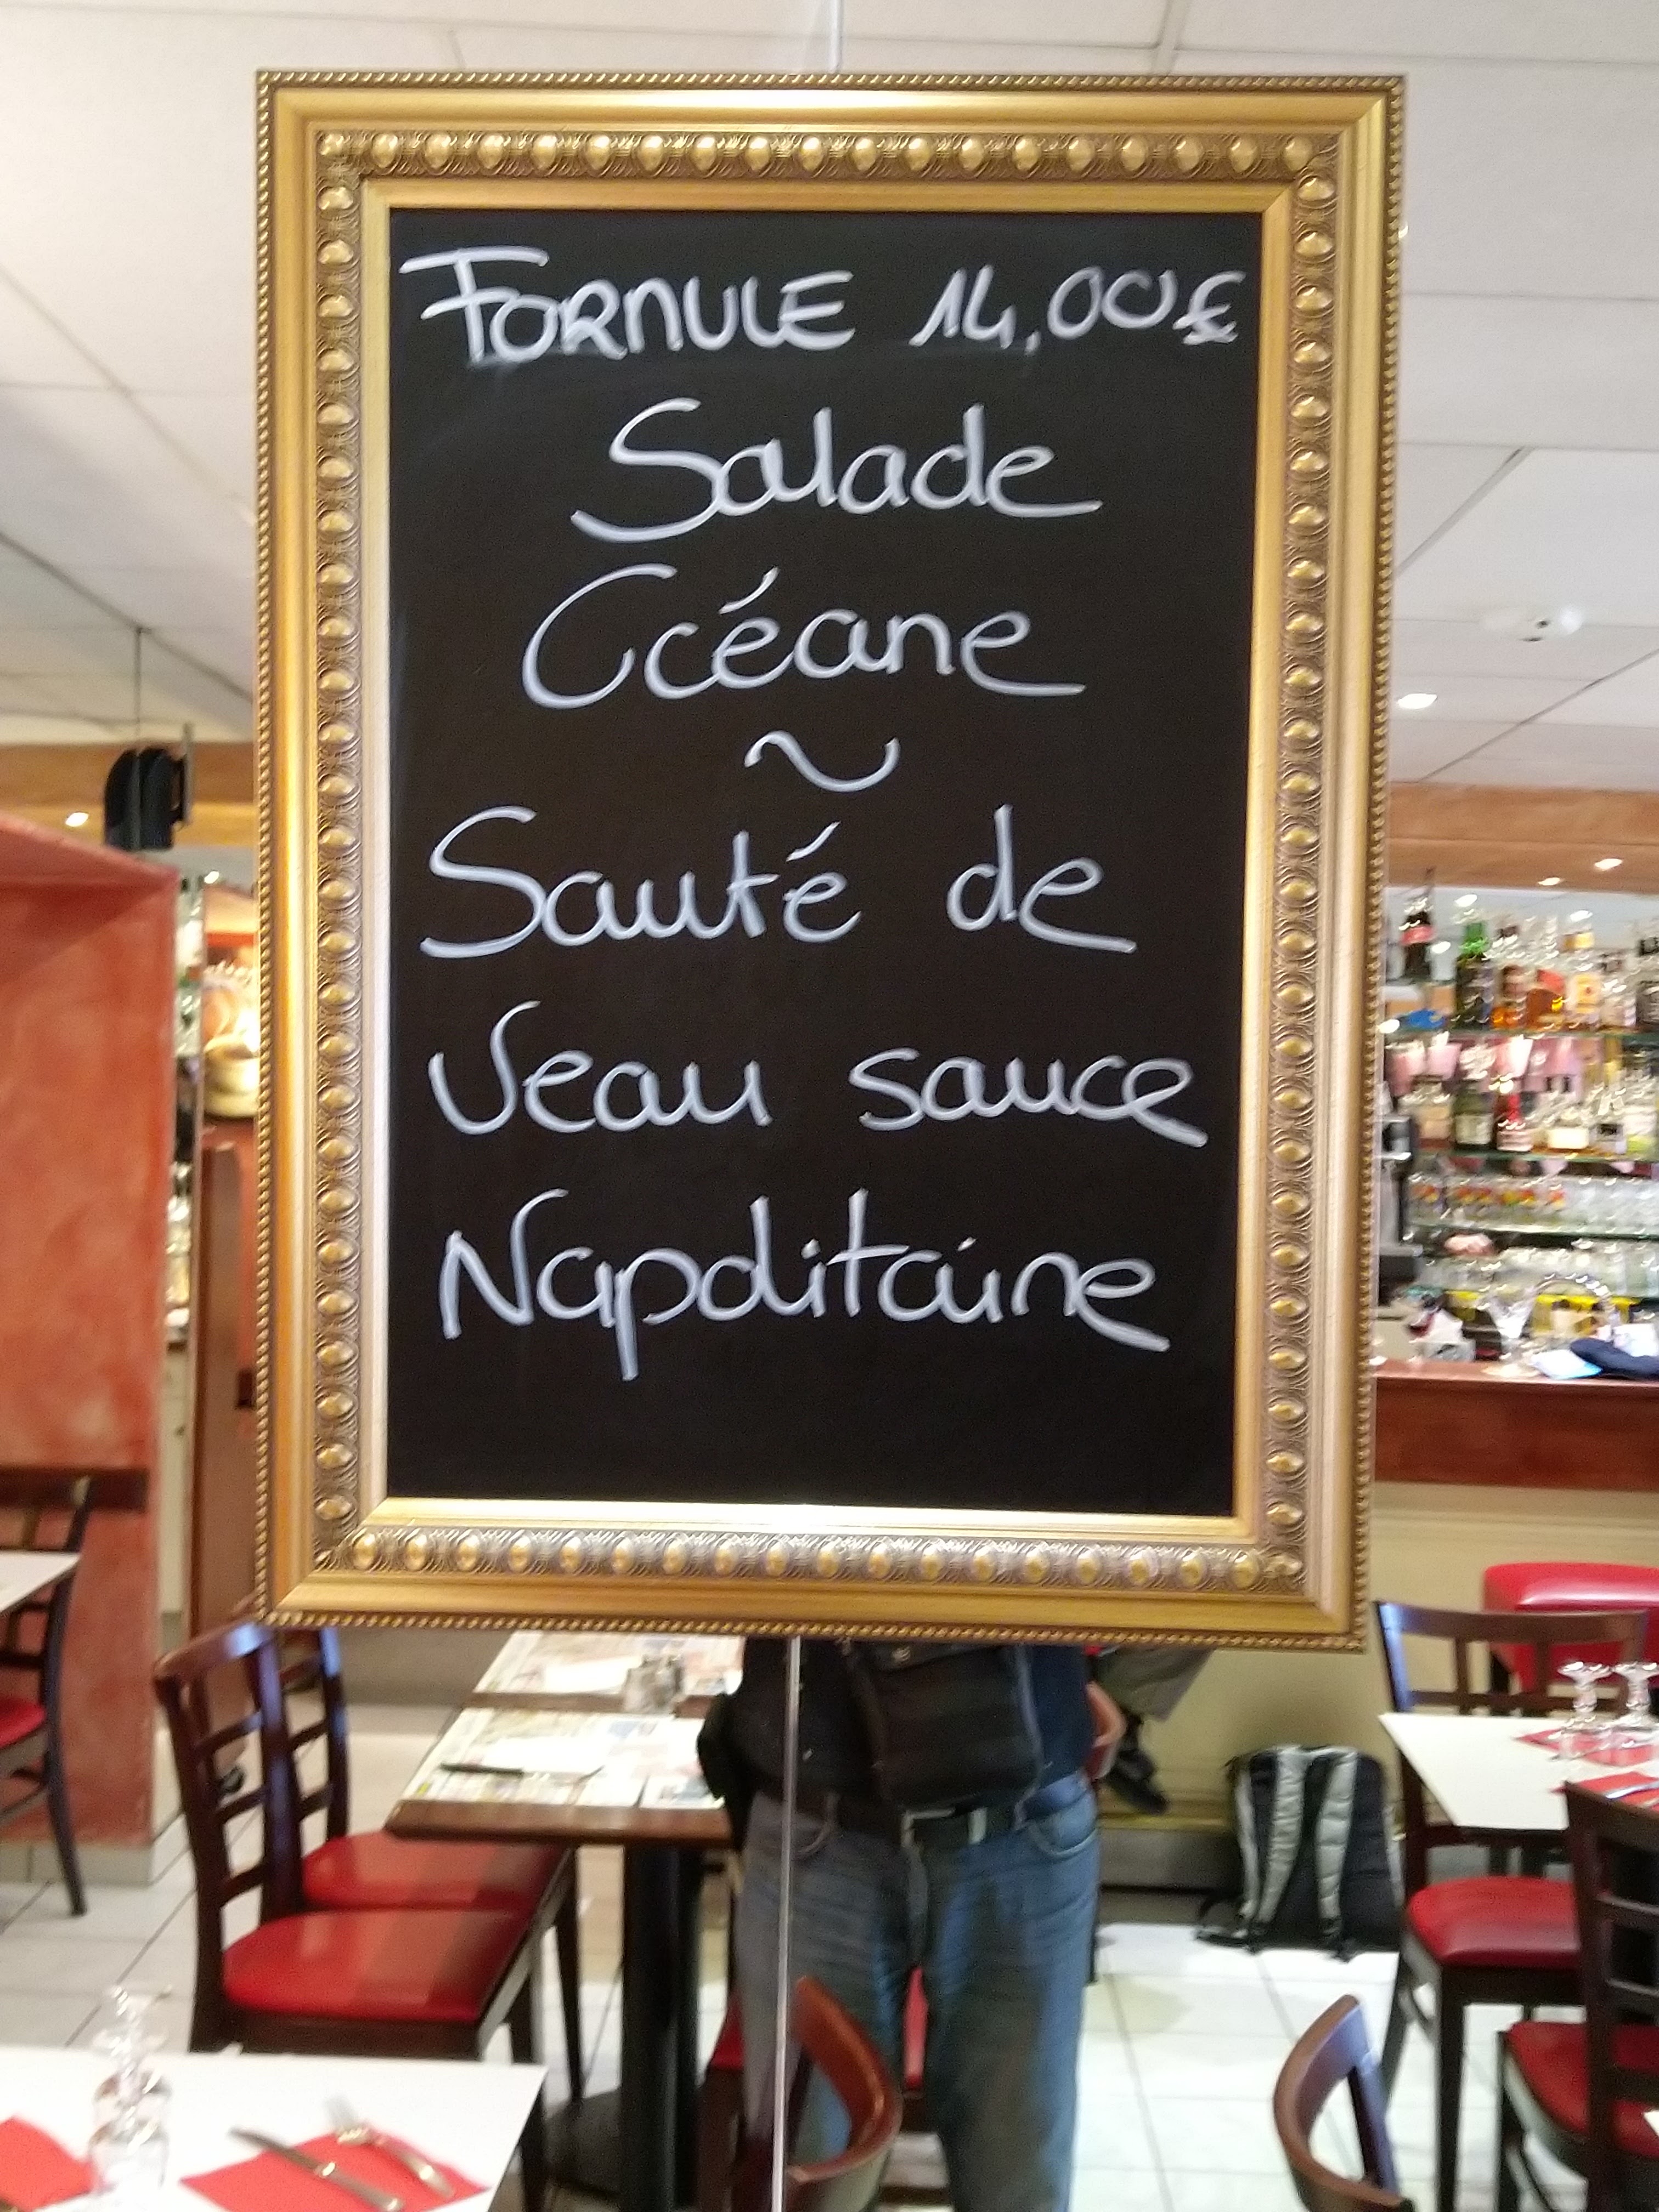 FORMULE 14,00€
Salade
Océane
~
Sauté de
Veau sauce
Napolitaine